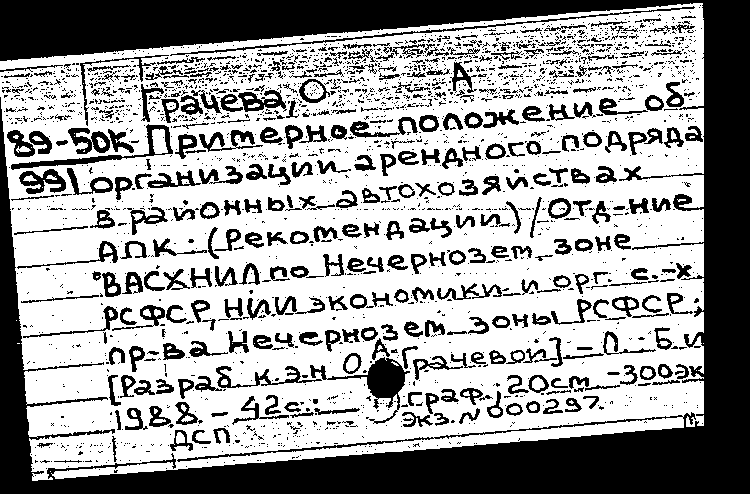 Грачева, О А
89-50К Примерное положение об
991 организации арендного подряда
в районных автохозяйствах
АПК: (Рекомендации) / Отд-ние
ВАСХНИЛ по Нечернозем. зоне
РСФСР, НИИ экономики и орг. с.-х.
пр-ва Нечернозем. зоны РСФСР;
[Разраб. к.э.н. О.А. Грачевой]. - Л.: Б.и
1988. - 42с.: граф.; 20см - 300эк
ДСП. Экз. N 000297.